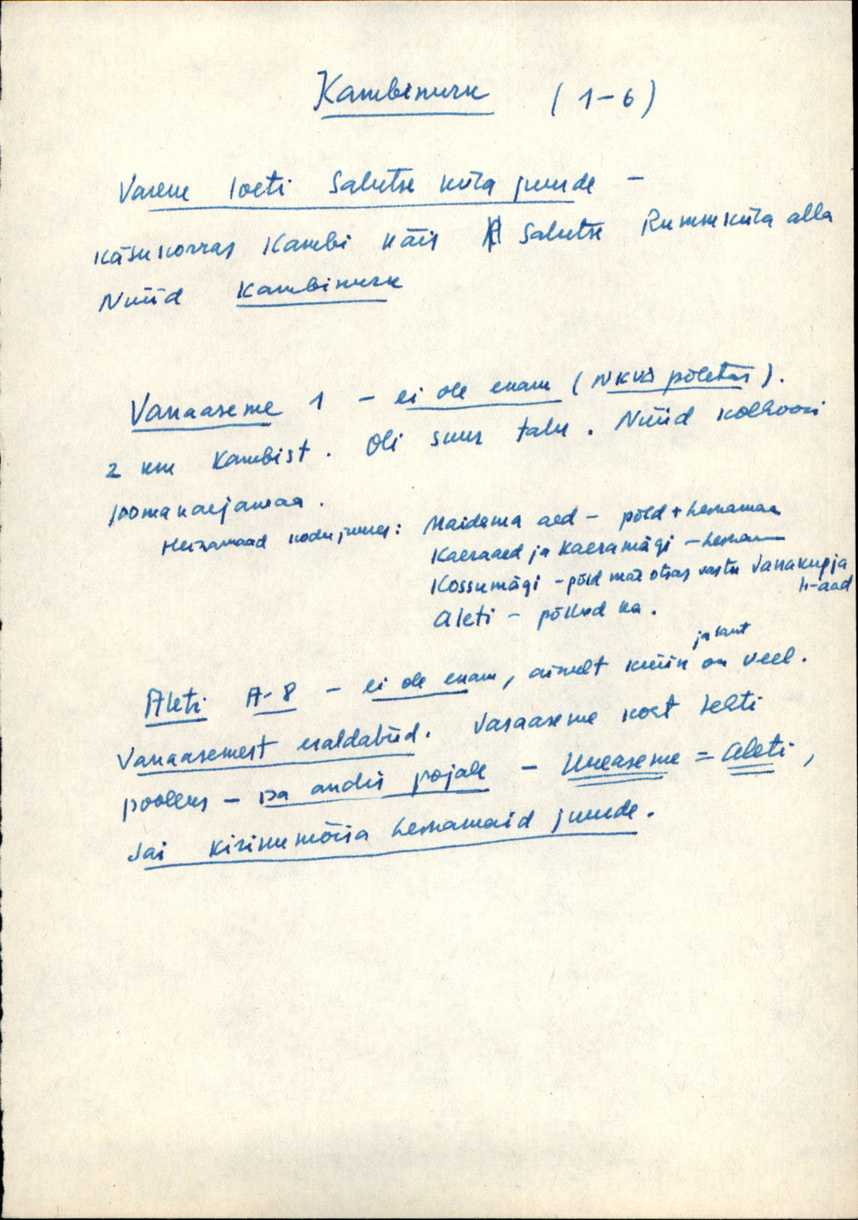 Kambinurk (1-6)
Varem loeti Salutse küla juurde -
käsukorras Kambi käis Salutse Rummküla alla
Nüüd Kambinurk
Vanaaseme 1 - ei ole enam (NKVD põletas).
2 km Kambist. Oli suur talu. Nüüd kolhoosi
loomakarjamaa.
Heinamaad kodu juures: Maidama aed - põld + heinamaa
Kaeraaed ja Kaeramägi - heinam
Kossumägi - põld mäe otsas vastu Vanakupja
h-aad
Aleti - põllud ka.
ja laut
Aleti A-8 - ei ole enam, ainult küün on veel.
Vanaasemest eraldatud. Vanaaseme koht tehti
pooleks - isa andis pojale - Uueaseme = Aleti,
Sai kirikumõisa heinamaid juurde.